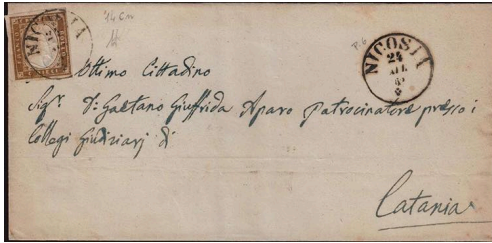 14 Cm
P. 6
NICOSIA
NICOSIA
24
Ottimo Cittadino
Sigr. Dn Gaetano Giuffrida Aparo Patrocinatore presso i
Collegi Giudiziarj di
Catania